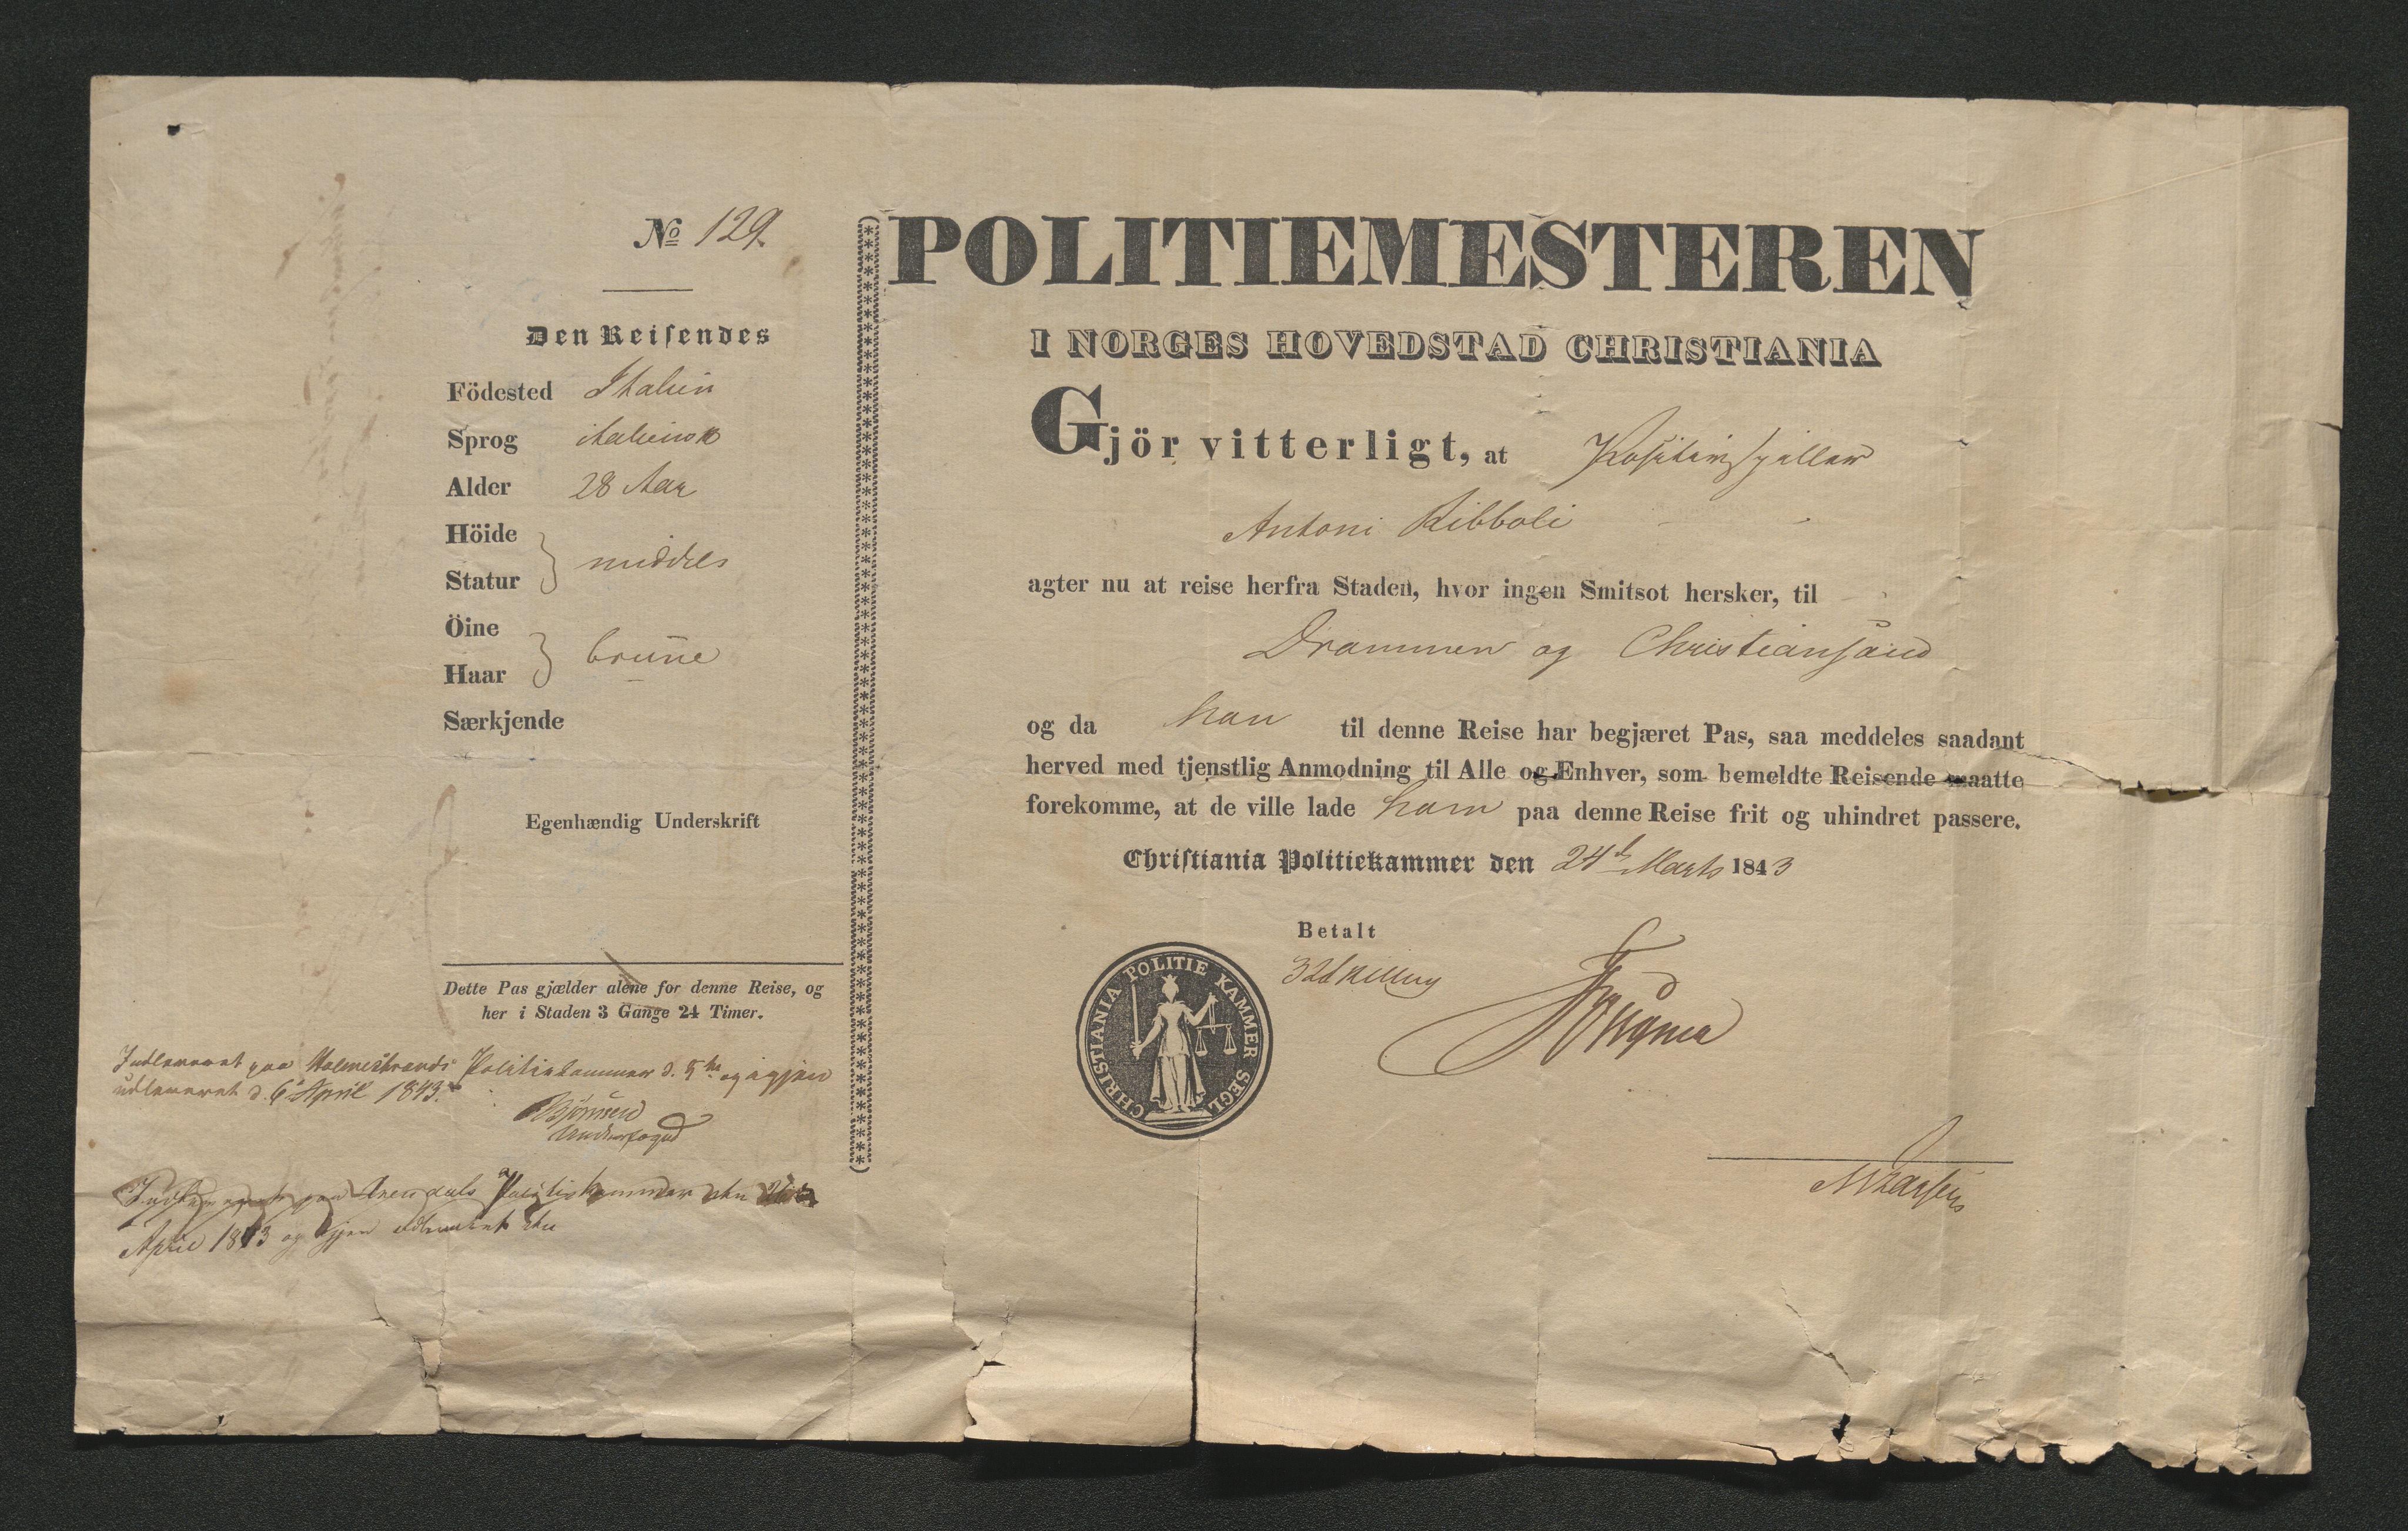 No 129.
Den Reisendes
Födested Italien
Sprog italiensk
Alder 28 Aar
Höide
Statur
middels
Öine
Haar
brune
Særkjende
Egenhændig Underskrift
Dette Pas gjælder alene for denne Reise, og
her i Staden 3 Gange 24 Timer.
Indleveret paa Holmestrands Politiekammer d. 5te og igjen
udleveret d. 6 April 1843.
Underfoged
Indleveret paa Arendals Politiekammer den
April 1843 og igjen udleveret den
POLITIEMESTEREN
I NORGES HOVEDSTAD CHRISTIANIA
Gjör vitterligt, at Positivspiller
Antoni Ribboli
agter nu at reise herfra Staden, hvor ingen Smitsot hersker, til
Drammen og Christiansand
og da han til denne Reise har begjæret Pas, saa meddeles saadant
herved med tjenstlig Anmodning til Alle og Enhver, som bemeldte Reisende maatte
forekomme, at de ville lade ham paa denne Reise frit og uhindret passere.
Christiania Politiekammer den 24de Marts 1843
Betalt
32 skilling
CHRISTIANIA POLITIE KAMMER SEGL